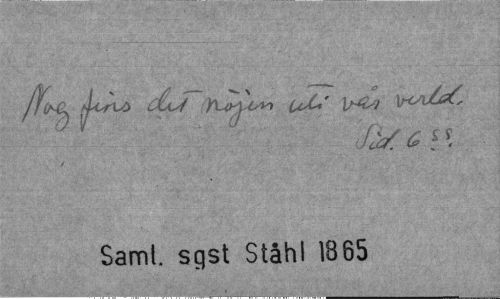 Nog fins det nöjen uti vår verld.
Sid. 6 ss.
Saml. sgst Ståhl 1865